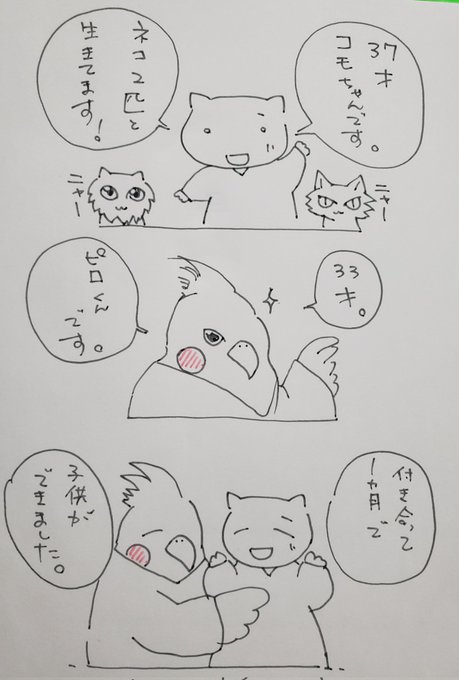 37才
コモちゃんです。
ネコ2匹と
生きてます！
ニャー
ニャー
33才。
ピロくん
です。
付き合って
一ヵ月で
子供が
できました。